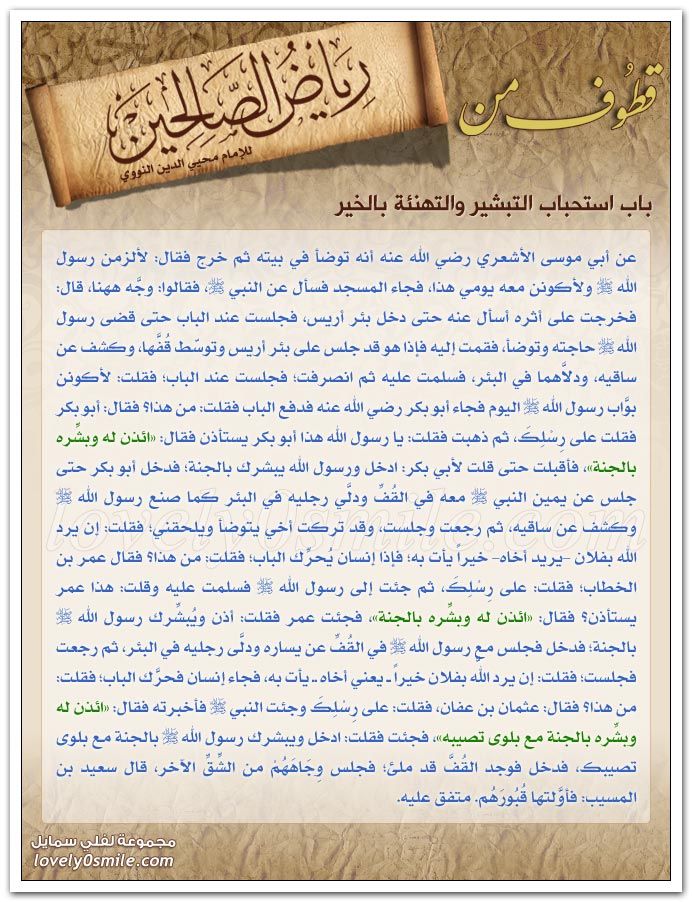 قطوف من
رياض الصالحين
للإمام محيي الدين النووي
باب استحباب التبشير والتهنئة بالخير
عن أبي موسى الأشعري رضي الله عنه أنه توضأ في بيته ثم خرج فقال: لألزمن رسول
الله ﷺ ولأكونن معه يومي هذا، فجاء المسجد فسأل عن النبي ﷺ، فقالوا: وجَّه ههنا، قال:
فخرجت على أثره أسأل عنه حتى دخل بئر أريس، فجلست عند الباب حتى قضى رسول
الله ﷺ حاجته وتوضأ، فقمت إليه فإذا هو قد جلس على بئر أريس وتوسّط قُفَّها، وكشف عن
ساقيه، ودلاَّهما في البئر، فسلمت عليه ثم انصرفت؛ فجلست عند الباب؛ فقلت: لأكونن
بوَّاب رسول الله ﷺ اليوم فجاء أبو بكر رضي الله عنه فدفع الباب فقلت: من هذا؟ فقال: أبو بكر
فقلت على رِسْلِكَ، ثم ذهبت فقلت: يا رسول الله هذا أبو بكر يستأذن فقال: «ائذن له وبشِّره
بالجنة»، فأقبلت حتى قلت لأبي بكر: ادخل ورسول الله يبشرك بالجنة؛ فدخل أبو بكر حتى
جلس عن يمين النبي ﷺ معه في القُفِّ ودلَّي رجليه في البئر كما صنع رسول الله ﷺ
وكشف عن ساقيه، ثم رجعت وجلست، وقد تركت أخي يتوضأ ويلحقني؛ فقلت: إن يرد
الله بفلان –يريد أخاه– خيراً يأت به؛ فإذا إنسان يُحرِّك الباب؛ فقلت: من هذا؟ فقال عمر بن
الخطاب؛ فقلت: على رِسْلِكَ، ثم جئت إلى رسول الله ﷺ فسلمت عليه وقلت: هذا عمر
يستأذن؟ فقال: «ائذن له وبشِّره بالجنة»، فجئت عمر فقلت: أذن ويُبشِّرك رسول الله ﷺ
بالجنة؛ فدخل فجلس مع رسول الله ﷺ في القُفِّ عن يساره ودلَّى رجليه في البئر، ثم رجعت
فجلست؛ فقلت: إن يرد الله بفلان خيراً ـ يعني أخاه ـ يأت به، فجاء إنسان فحرَّك الباب؛ فقلت:
من هذا؟ فقال: عثمان بن عفان، فقلت: على رِسْلِكَ وجئت النبي ﷺ فأخبرته فقال: «ائذن له
وبشِّره بالجنة مع بلوى تصيبه»، فجئت فقلت: ادخل ويبشرك رسول الله ﷺ بالجنة مع بلوى
تصيبك، فدخل فوجد القُفَّ قد ملئ؛ فجلس وِجَاهَهُمْ من الشِّقِّ الآخر، قال سعيد بن
المسيب: فأوَّلتها قُبُورَهُم. متفق عليه.
lovely0smile.com
مجموعة لفلي سمايل
lovely0smile.com